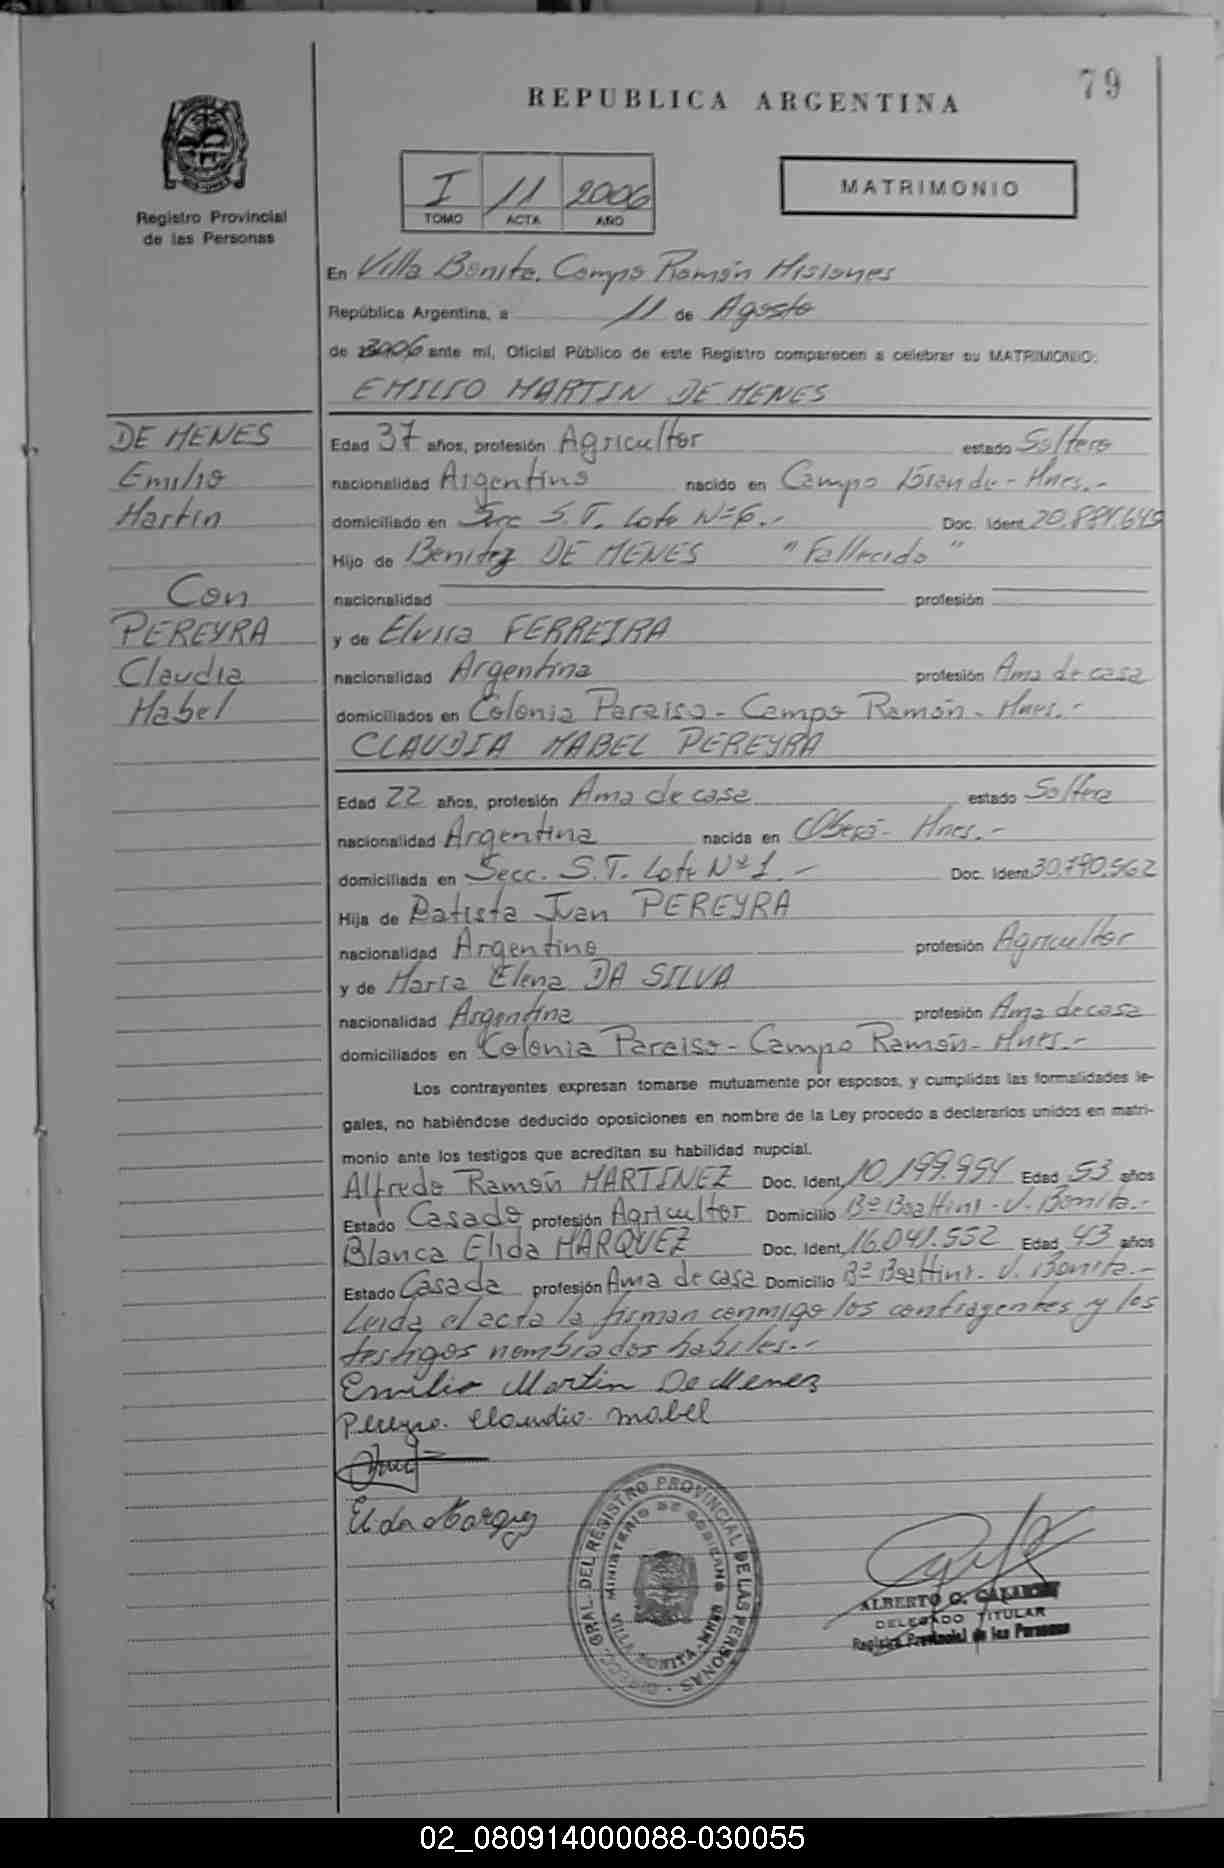 79
REPUBLICA ARGENTINA
Registro Provincial
de las Personas
I 11 2006
TOMO ACTA AÑO
MATRIMONIO
En Villa Bonita. Campo Ramón Misiones
República Argentina, a 11 de Agosto
de 2006 ante mí, Oficial Público de este Registro comparecen a celebrar su MATRIMONIO:
EMILIO MARTIN DE MENES
DE MENES
Emilio
Martin
Con
PEREYRA
Claudia
Mabel
Edad 37 años, profesión Agricultor estado Soltero
nacionalidad Argentino nacido en Campo Grande - Mnes.-
domiciliado en Secc S.T. Lote Nº 6.- Doc. Ident.
Hijo de Benitez DE MENES "Fallecido"
nacionalidad profesión
y de Elvira FERREIRA
nacionalidad Argentina profesión Ama de casa
domiciliados en Colonia Paraiso - Campo Ramón - Mnes.-
CLAUDIA MABEL PEREYRA
Edad 22 años, profesión Ama de casa estado Soltera
nacionalidad Argentina nacida en Oberá - Mnes.-
domiciliada en Secc. S.T. Lote Nº 1.- Doc. Ident. 30.790.562
Hija de Batista Juan PEREYRA
nacionalidad Argentino profesión Agricultor
y de María Elena DA SILVA
nacionalidad Argentina profesión Ama de casa
domiciliados en Colonia Paraiso - Campo Ramón - Mnes.-
Los contrayentes expresan tomarse mutuamente por esposos, y cumplidas las formalidades le-
gales, no habiéndose deducido oposiciones en nombre de la Ley procedo a declararlos unidos en matri-
monio ante los testigos que acreditan su habilidad nupcial.
Alfredo Ramón MARTINEZ Doc. Ident. 10.199.954 Edad 53 años
Estado Casado profesión Agricultor Domicilio Bº Beattini - V. Bonita.-
Blanca Elida MARQUEZ Doc. Ident. 16.041.552 Edad 43 años
Estado Casada profesión Ama de casa Domicilio Bº Beattini - V. Bonita.-
Leida el acta la firman conmigo los contrayentes y los
testigos nombrados habiles.-
Emilio Martin De Menez
Pereyra Claudia mabel
Elida Marquez
GRAL. DEL REGISTRO PROVINCIAL DE LAS PERSONAS
MINISTERIO DE GOBIERNO
VILLA BONITA - MNES
ALBERTO
DELEGADO TITULAR
Registro Provincial de las Personas
02_080914000088-030055